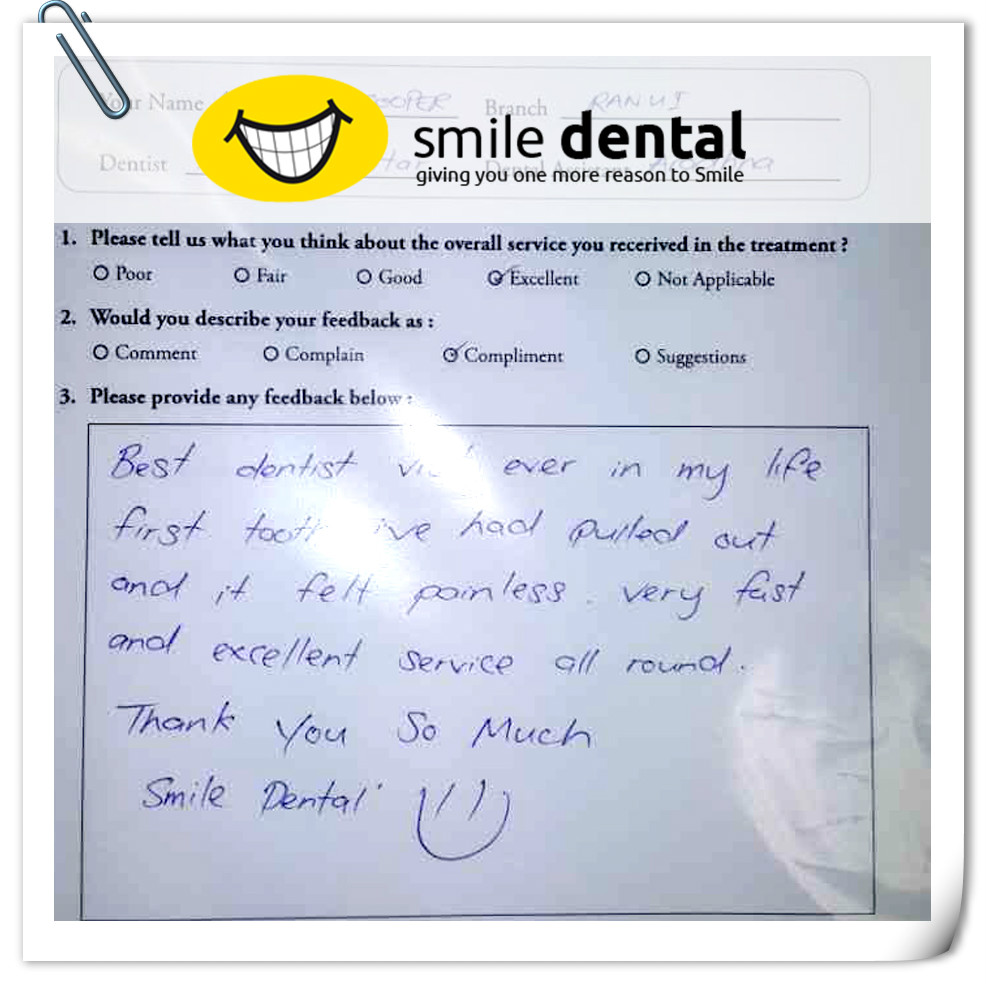 Your Name COOPER Branch RANUI
smile dental
Dentist Dental Assistant
giving you one more reason to Smile
1. Please tell us what you think about the overall service you recerived in the treatment ?
O Poor O Fair O Good O Excellent O Not Applicable
2. Would you describe your feedback as :
O Comment O Complain O Compliment O Suggestions
3. Please provide any feedback below :
Best dentist ever in my life
first tooth i've had pulled out
and it felt painless. very fast
and excellent service all round.
Thank You So Much
Smile Dental